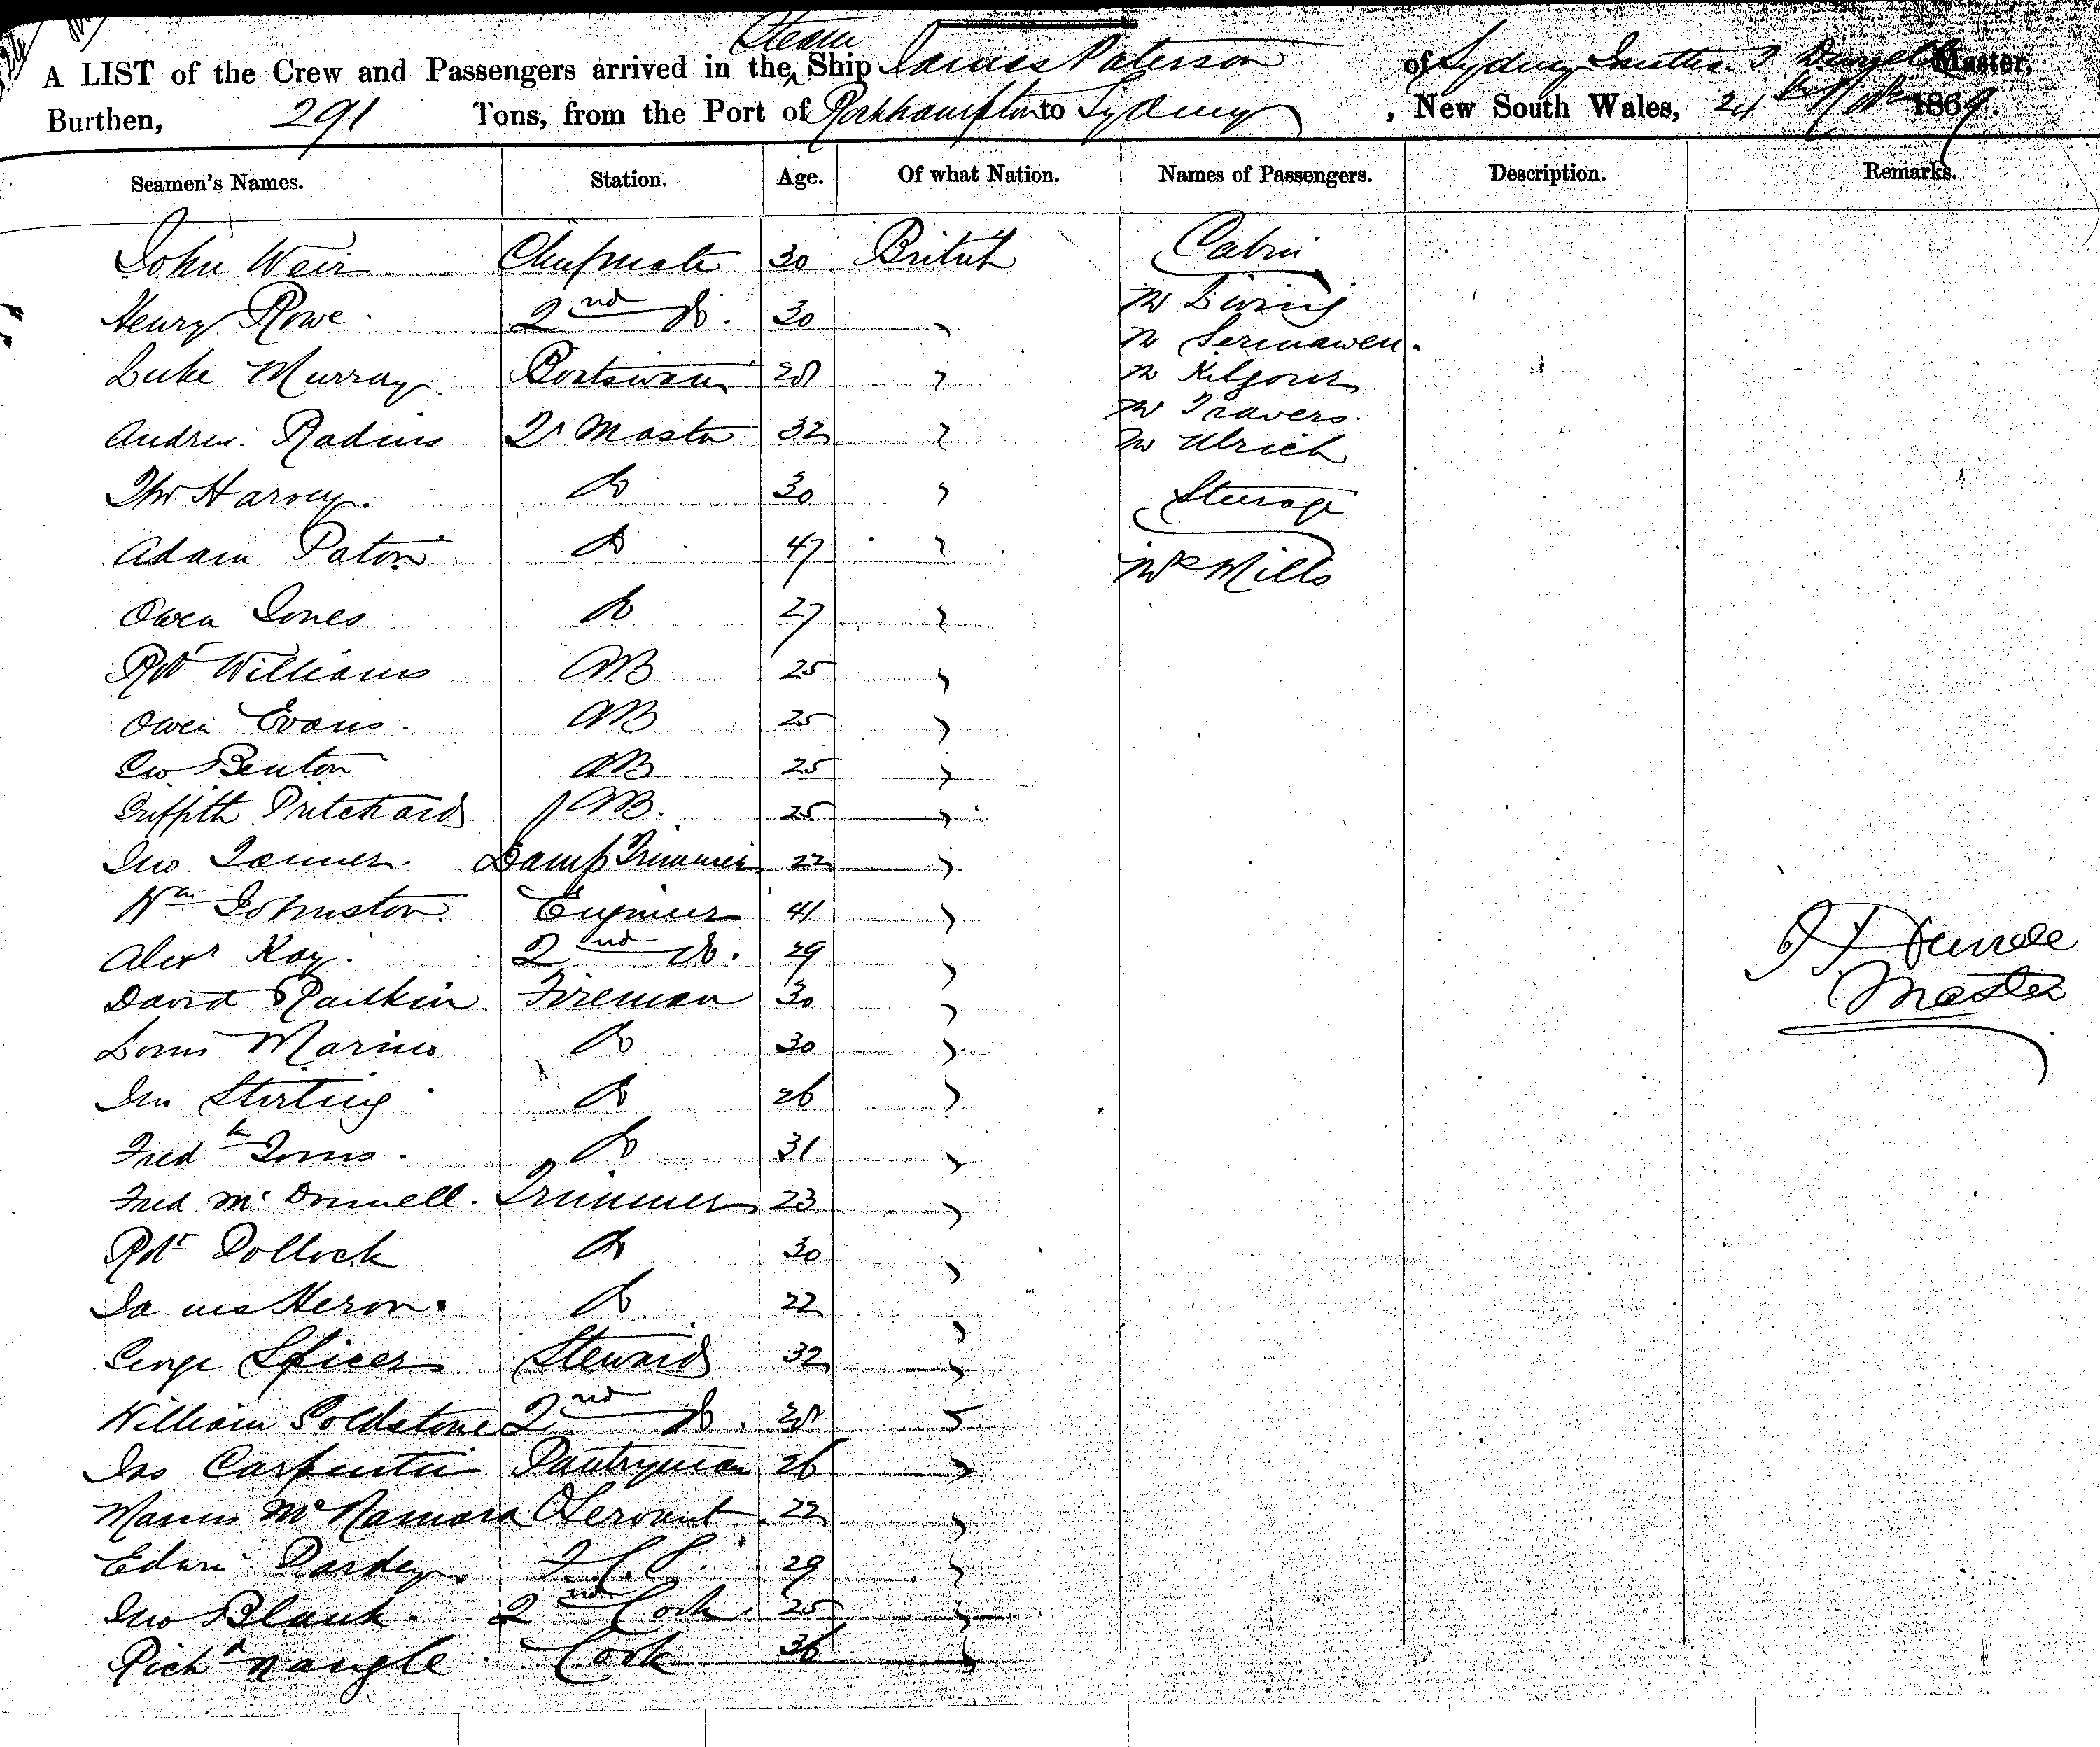 Steam
A LIST of the Crew and Passengers arrived in the Ship James Paterson of Sydney Master,
Burthen, 291 Tons, from the Port of Rockhampton to Sydney, New South Wales, 24th 1869.
Seamen's Names. Station. Age. Of what Nation. Names of Passengers. Description. Remarks.
John Weir Chief mate 30 British Cabin
Henry Rowe 2nd Do. 30 " Mr Ewing
Luke Murray Boatswain 28 " Mr
Mr Kilgour
Mr Travers
Andrew Radius Qr Master 32 " Mr Ulrich
Thos Harvey Do 30 " Steerage
Adam Paton Do 47 " Mr Mills
Owen Jones Do 27 "
Robt Williams AB 25 "
Owen Evans AB 25 "
Geo Benton AB 25 "
Griffith Pritchard AB 25 "
Jno Tanner Lamp Trimmer 22 "
Wm Johnston Engineer 41 "
Alexr Kay 2nd Do. 29 "
David Rankin Fireman 30 "
Louis Marino Do 30 "
Jno Stirling Do 26 "
Fredk Toms Do 31 "
Fred McDonnell Trimmer 23 "
Robt Pollock Do 30 "
James Heron Do 22 "
George Spicer Steward 32 "
William Goldstone 2nd Do. 28 "
Jas Carpenter Pantryman 26 "
McNamara Servant 22 "
Edwin Pardey 29 "
Jno Blank 2nd Cook 25 "
Richd Nangle Cook 36 "
Master